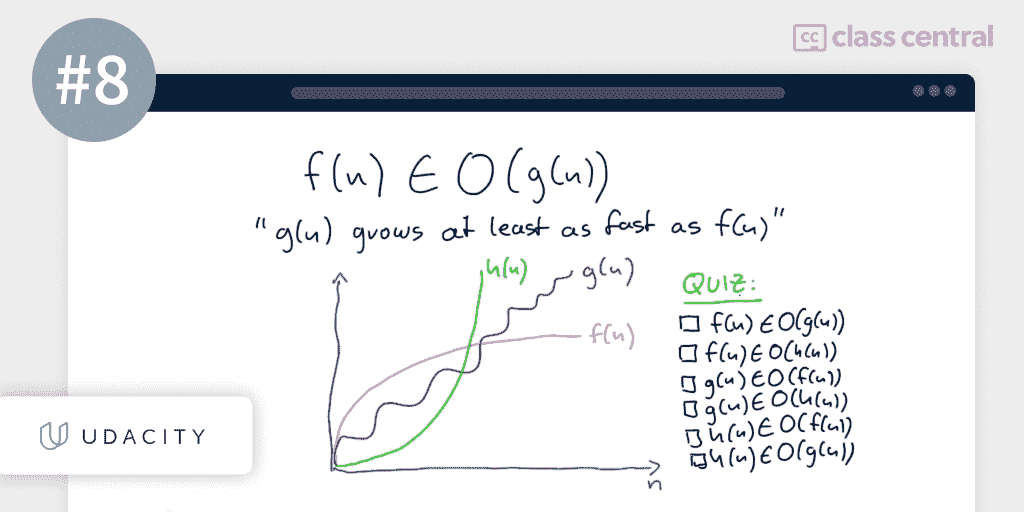 #8
class central
f(n) ∈ O(g(n))
"g(n) grows at least as fast as f(n)"
h(n)
g(n)
f(n)
n
QUIZ:
f(n) ∈ O(g(n))
f(n) ∈ O(h(n))
g(n) ∈ O(f(n))
g(n) ∈ O(h(n))
h(n) ∈ O(f(n))
h(n) ∈ O(g(n))
UDACITY